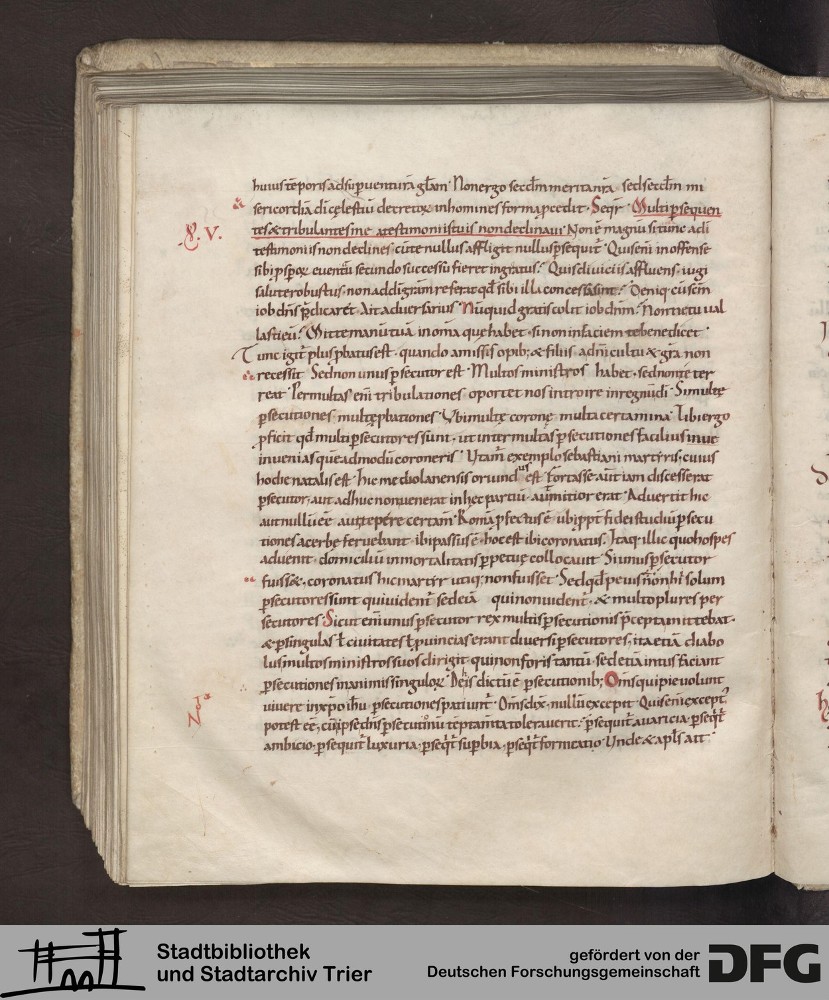 huius tēporis ad supventurā glam. Non ergo secdm merita nra sed secdm mi
sericordiā di cęlestiū decretorꝝ in homines forma pcedit. Seqr. Multi psequen
V.
tes & tribulantes me a testimoniis tuis non declinaui. Non ē magnū si tunc a di
testimoniis non declines, cū te nullus affligit nullus psequit. Quis eni in offense
sibi pspoꝝ euentū secundo successu fieret ingratus? Quis diuiciis affluens, uigi
salute robustus, non ad di gram referat qd sibi illa concessa sint? Deniq; cū sem
iob dns pdicaret. Ait aduersarius. Nūquid gratis colit iob dnm? Non tu tu ual
lasti eu? Mitte manū tuā in oma que habet, si non in faciem te benedicet.
Tunc igit plus pbatus est, quando amissis opib; & filiis, a dni cultu & gra non
recessit. Sed non unus psecutor est. Multos ministros habet, sed non te ter
reat. Per multas eni tribulationes oportet nos introire in regnū di. Si multę
psecutiones, multę pbationes. Vbi multę coronę, multa certamina. Tibi ergo
pficit qd multi psecutores sunt, ut inter multas psecutiones facilius inue
inuenias queadmodū coroneris. Utam exemplo sebastiani martyris, cuius
hodie natalis est. hic mediolanensis oriundus est. Fortasse aut iam discesserat
psecutor, aut adhuc non uenerat in hec partiū, aut mitior erat. Aduertit hic
aut nullū ee aut tepere certam. Romā pfectus ē ubi ppt fidei studiū psecu
tiones acerbę feruebant. ibi passus ē. hoc est ibi coronatus. Itaq; illic quo hospes
aduenit, domiciliū inmortalitatis ppetuę collocauit. Si unus psecutor
fuiss&, coronatus hic martyr utiq; non fuisset. Sed qd peius non hi solum
psecutores sunt qui uident sed etiā qui non uident. & multo plures per
secutores. Sicut eni unus psecutor rex multis psecutionis pcepta mittebat.
& p singulas ł ciuitates ł puincias erant diuersi psecutores, ita etiā diabo
lus multos ministros suos dirigit, qui non foris tantū, sed etiā intus faciant
psecutiones in animis singuloꝝ. De his dictū ē psecutionib; Oms qui pie uolunt
uiuere in xpo ihu, psecutiones patiunt. Oms dix, nullū excepit. Quis eni except,
potest ee, cū ipse dns psecutionū teptamta tolerauerit? psequit auaricia, pseqt
ambicio, psequit luxuria, pseqt supbia, pseqt fornicatio. Unde & apls ait.
Stadtbibliothek
und Stadtarchiv Trier
gefördert von der
Deutschen Forschungsgemeinschaft
DFG